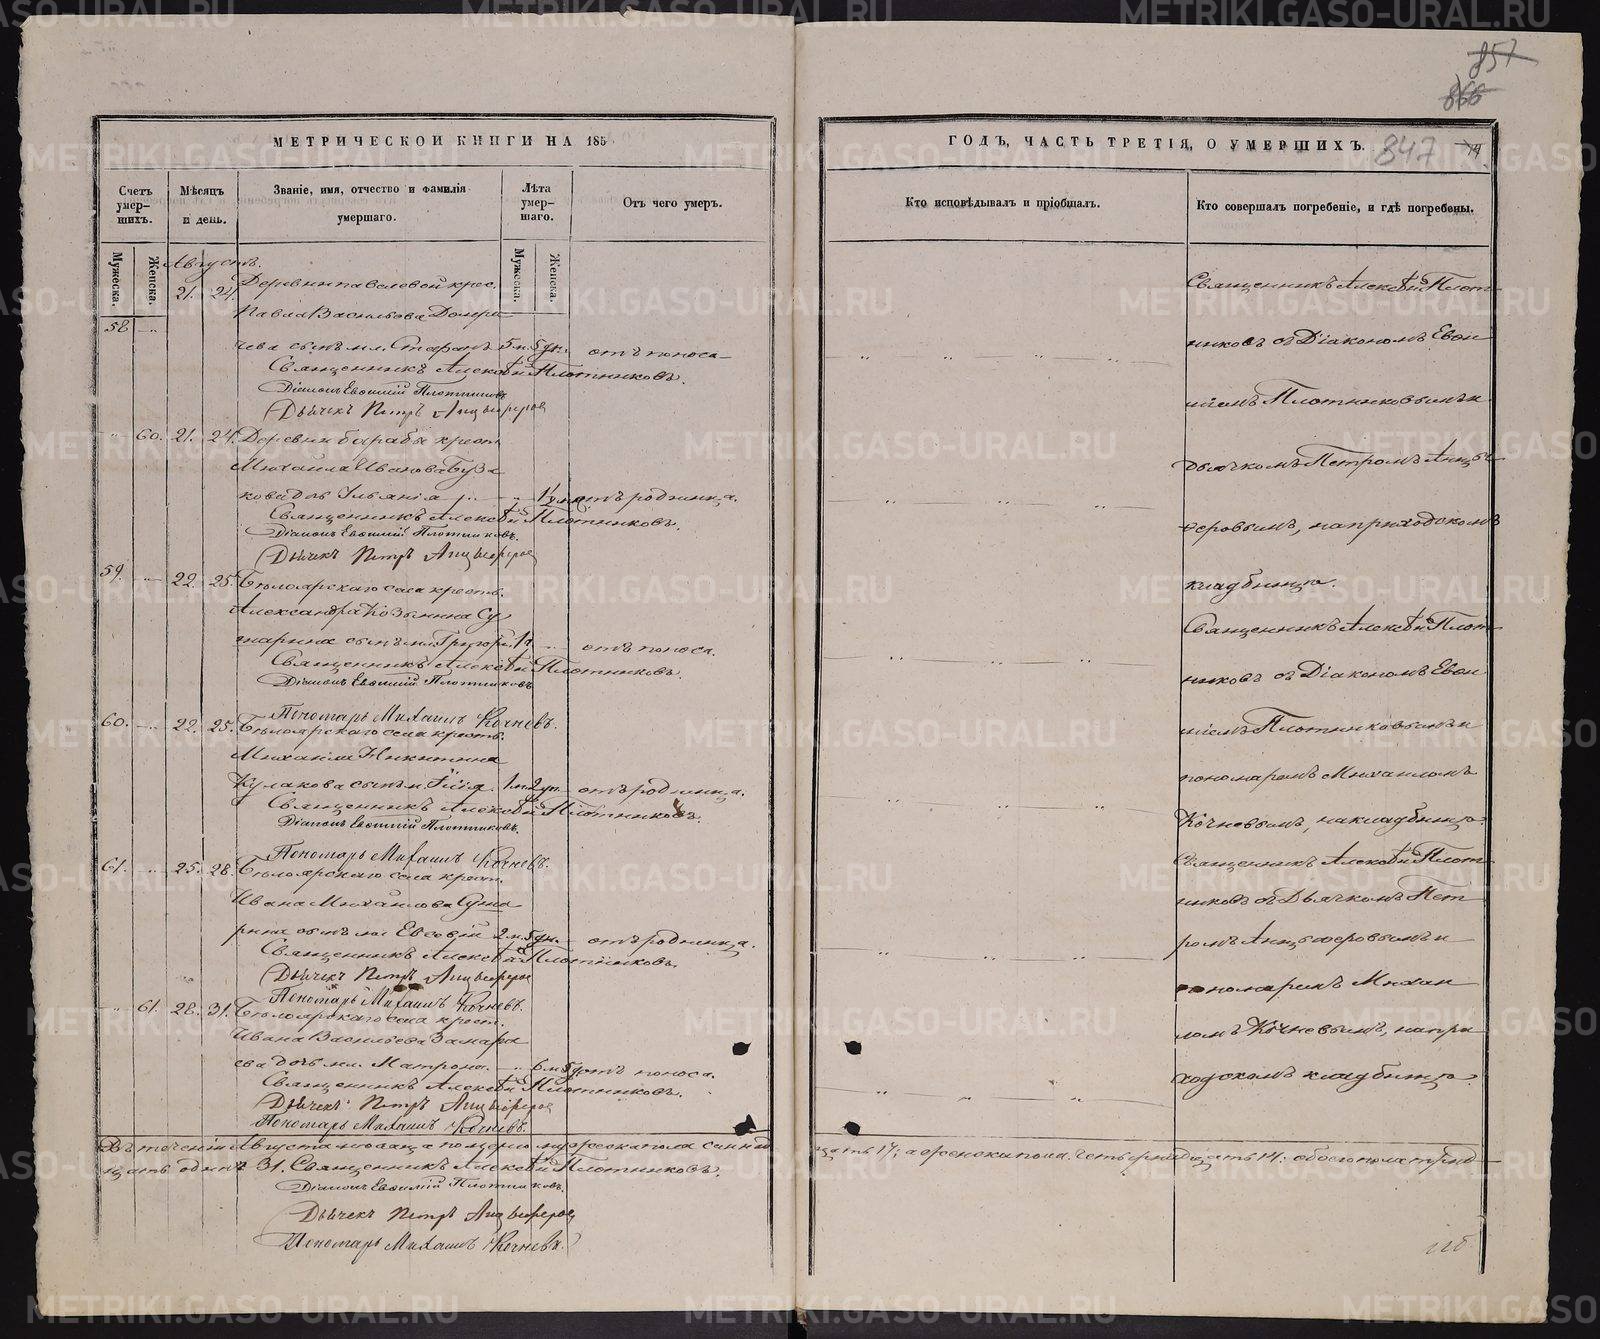 МЕТРИЧЕСКОЙ КНИГИ НА 185
Счетъ умер-шихъ.
Мѣсяцъ и день.
Званіе, имя, отчество и фамилія умершаго.
Лѣта умер-шаго.
Отъ чего умеръ.
Мужеска.
Женска.
Мужеска.
Женска.
Августъ.
21. 24. Деревни крес.
Павла Васильева
58 чева сынъ мл. 5 м. 5 дн. отъ поноса
Священникъ Алексѣй Плотниковъ.
Діаконъ Евѳимій Плотниковъ
Дьячекъ Петръ Анцыферовъ
60. 21. 24. Деревни Барабы крест.
Михаила Иванова Буза
кова дочь Ульянія отъ родимца.
Священникъ Алексѣй Плотниковъ.
Діаконъ Евѳимій Плотниковъ.
Дьячекъ Петръ Анцыферовъ
59. 22. 25. Бѣлоярскаго села крестъ.
Александра Козьмина Су
нарина сынъ мл. Григорій 1 г. отъ поноса.
Священникъ Алексѣй Плотниковъ.
Діаконъ Евѳимій Плотниковъ
Пономарь Михаилъ Кочневъ.
60. 22. 25. Бѣлоярскаго села крестъ.
Михаила Никитина
Кулакова сынъ м. Илія 1 м. 2 дн. отъ родимца.
Священникъ Алексѣй Плотниковъ.
Діаконъ Евѳимій Плотниковъ.
Пономарь Михаилъ Кочневъ.
61. 25. 28. Бѣлоярскаго села крест.
Ивана Михайлова Суна
рина сынъ мл. Евсевій 2 м. 5 дн. отъ родимца.
Священникъ Алексѣй Плотниковъ.
Дьячекъ Петръ Анцыферовъ
Пономарь Михаилъ Кочневъ.
61. 28. 31. Бѣлоярскаго села крест.
Ивана Васильева Замара
ева дочь мл. Матрона. 6 м. отъ поноса.
Священникъ Алексѣй Плотниковъ.
Дьячекъ Петръ Анцыферовъ
Пономарь Михаилъ Кочневъ.
Въ теченіи Августа мѣсяца померло мужеска пола семнад
цать одинъ 31. Священникъ Алексѣй Плотниковъ.
Діаконъ Евѳимій Плотниковъ.
Дьячекъ Петръ Анцыферовъ
Пономарь Михаилъ Кочневъ.
857
866
ГОДЪ, ЧАСТЬ ТРЕТІЯ, О УМЕРШИХЪ. 847
Кто исповѣдывалъ и пріобщалъ.
Кто совершалъ погребеніе, и гдѣ погребены.
Священникъ Алексѣй Плот
никовъ съ Діакономъ Евѳи
міемъ Плотниковымъ и
дьячкомъ Петромъ Анцы
феровымъ, на приходскомъ
кладбищѣ.
Священникъ Алексѣй Плот
никовъ съ Діакономъ Евѳи
міемъ Плотниковымъ и
пономаремъ Михаиломъ
Кочневымъ, на кладбищѣ.
Священникъ Алексѣй Плот
никовъ съ Дьячкомъ Пет
ромъ Анцыферовымъ и
пономаремъ Михаи
ломъ Кочневымъ, на при
ходскомъ кладбищѣ.
цать 17; а женска пола четырнадцать 14; обоего пола тридѣ
METRIKI.GASO-URAL.RU